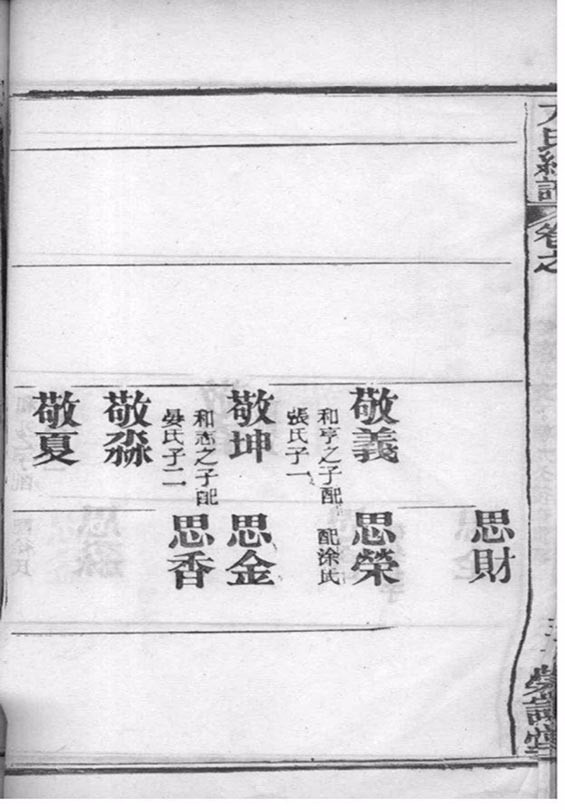 氏
卷之
思財
敬義
和亨之子配
張氏子一
思榮
配涂氏
敬坤
和志之子配
晏氏子二
思金
思香
敬淼
敬夏